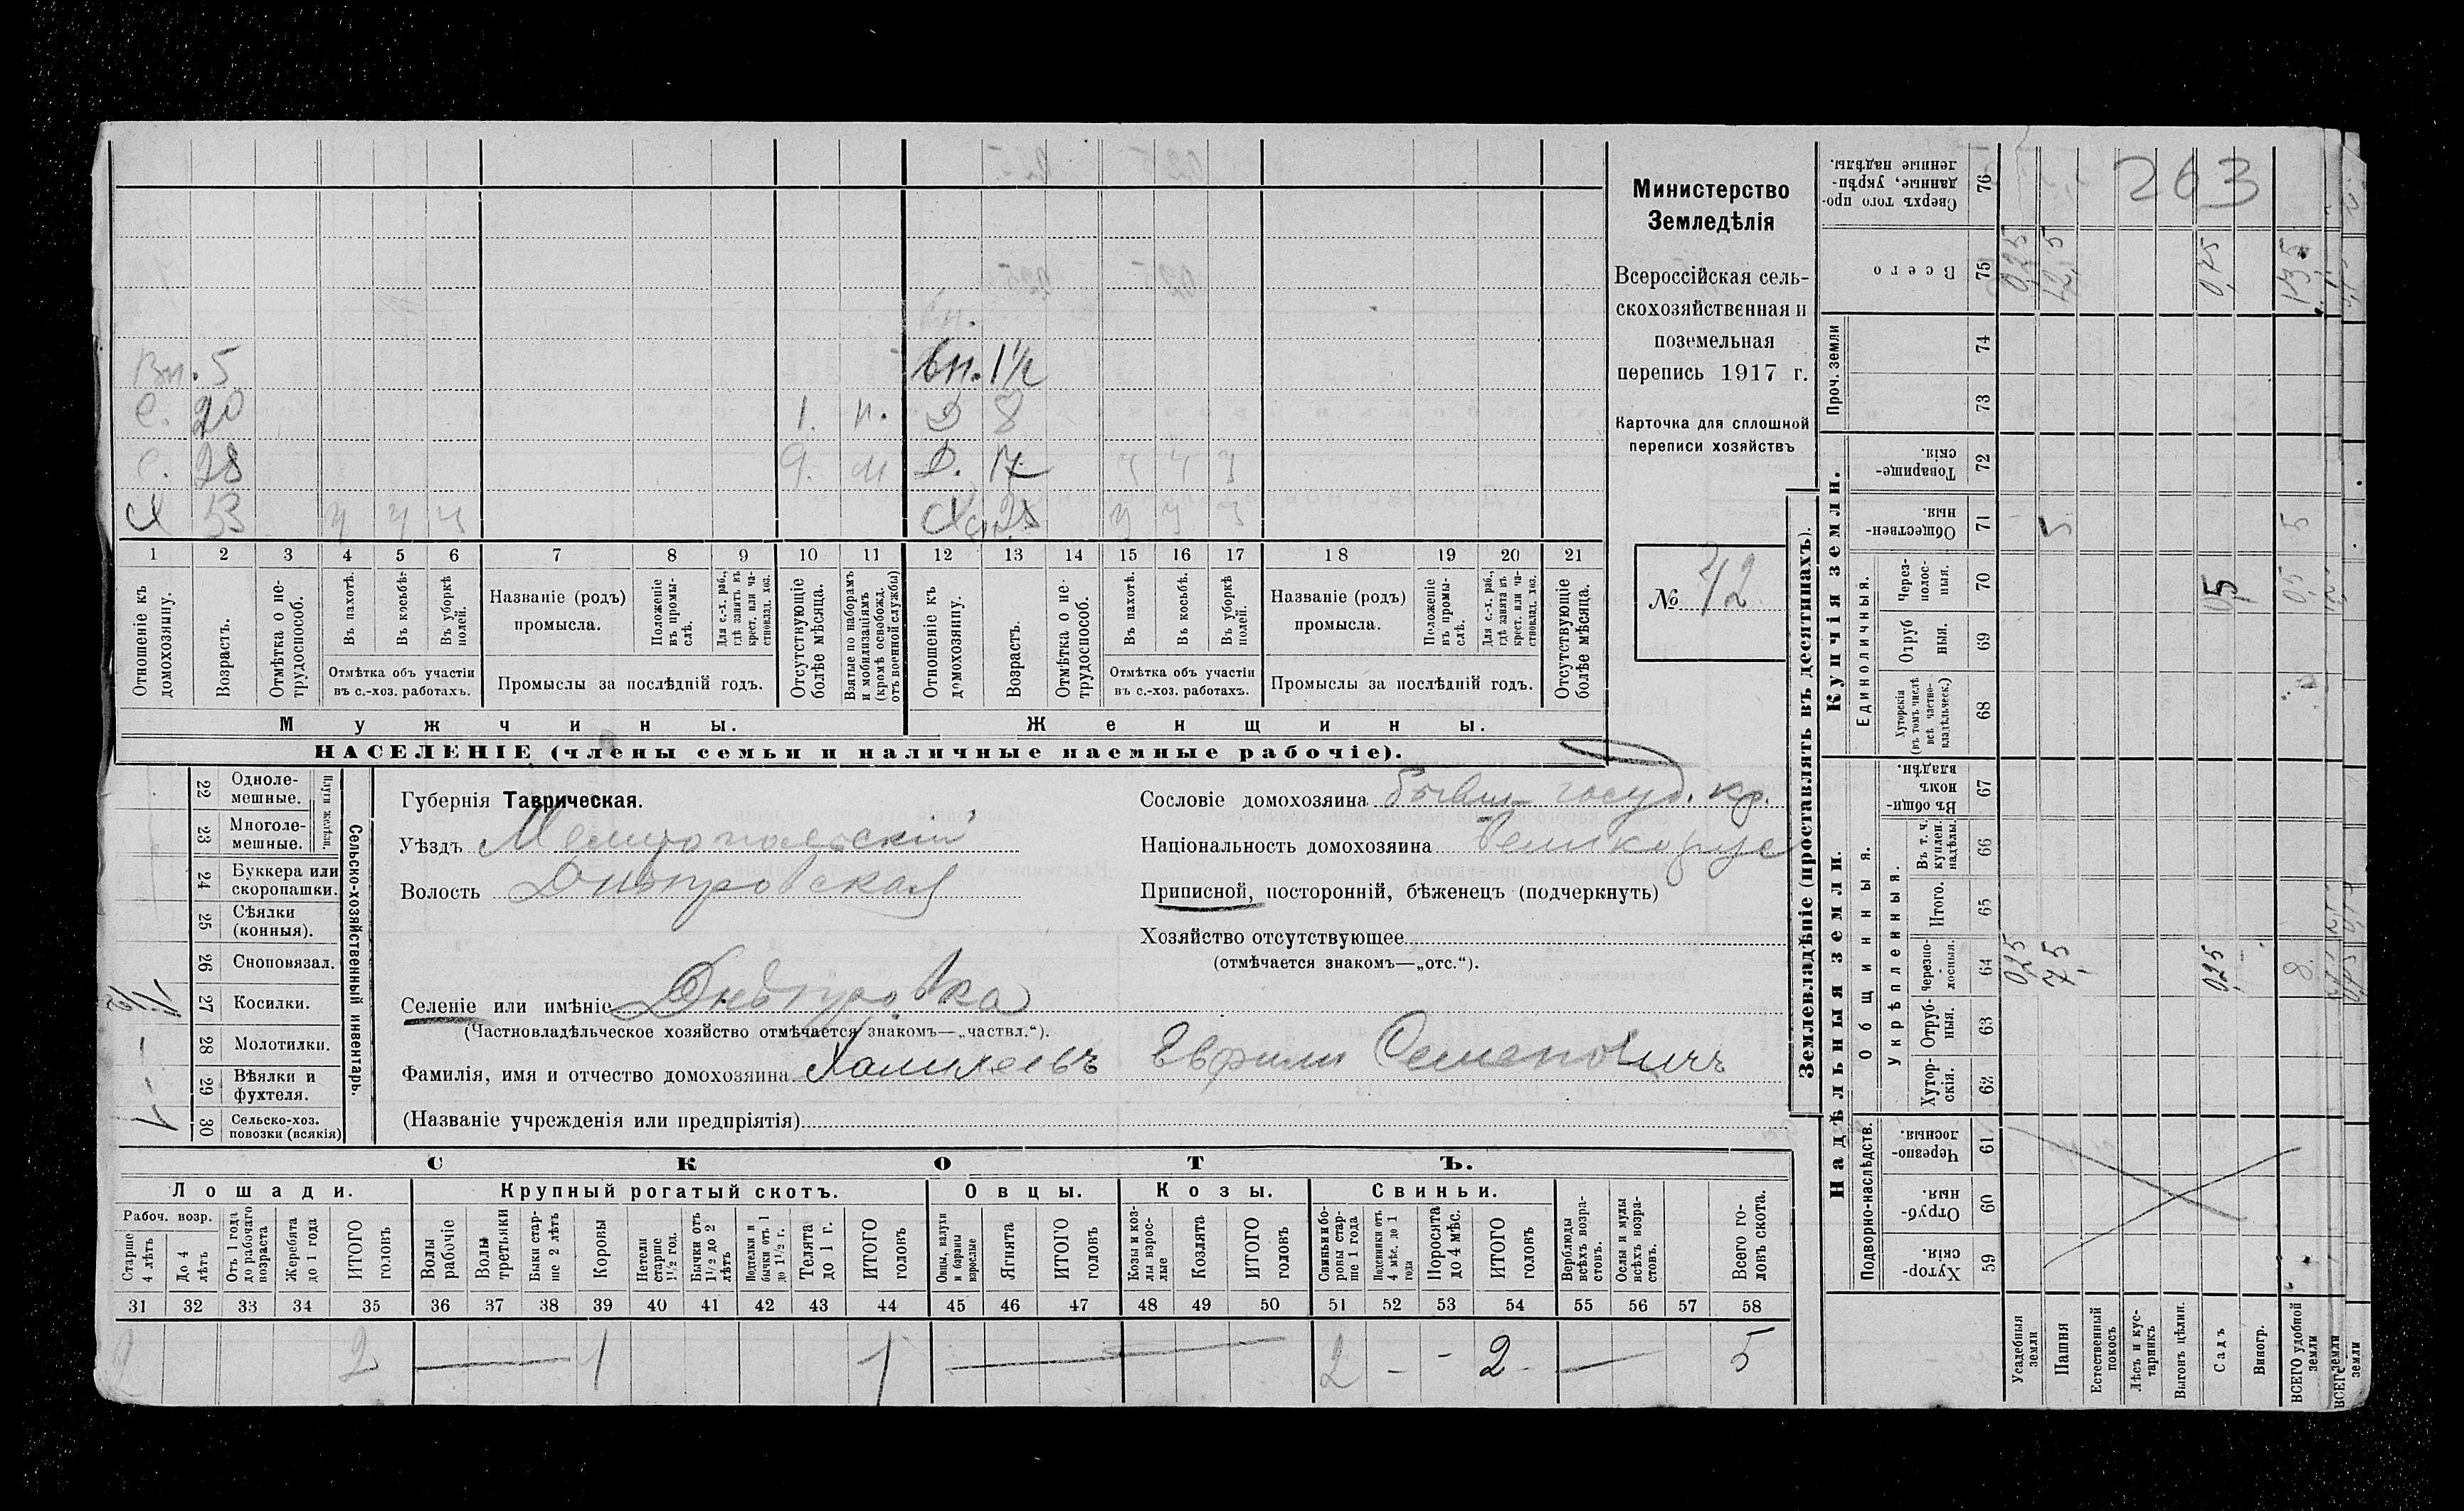 263
Министерство
Земледѣлія
Всероссійская сель-
скохозяйственная и
поземельная
перепись 1917 г.
Карточка для сплошной
переписи хозяйствъ
№ 42
Вп. 5
С. 20 1. н.
С. 28 9. м
Х 53 ч ч ч
вп. 1½
Д 8
Д. 17 ч ч ч
28 ч ч ч
1 2 3 4 5 6 7 8 9 10 11 12 13 14 15 16 17 18 19 20 21
Отношеніе къ домохозяину.
Возрастъ.
Отмѣтка о не-трудоспособ.
Въ пахотѣ.
Въ косьбѣ.
Въ уборкѣ полей.
Отмѣтка объ участіи
въ с.-хоз. работахъ.
Названіе (родъ)
промысла.
Положеніе въ промы-слѣ.
Для с.-х. раб., гдѣ занятъ въ крест. или ча-стновлад. хоз.
Промыслы за послѣдній годъ.
Отсутствующіе болѣе мѣсяца.
Взятые по наборамъ и мобилизаціямъ (кромѣ освобожд. отъ военной службы)
Отношеніе къ домохозяину.
Возрастъ.
Отмѣтка о не-трудоспособ.
Въ пахотѣ.
Въ косьбѣ.
Въ уборкѣ полей.
Отмѣтка объ участіи
въ с.-хоз. работахъ.
Названіе (родъ)
промысла.
Положеніе въ промы-слѣ.
Для с.-х. раб., гдѣ занята въ крест. или ча-стновлад. хоз.
Промыслы за послѣдній годъ.
Отсутствующіе болѣе мѣсяца.
Мужчины.
Женщины.
НАСЕЛЕНІЕ (члены семьи и наличные наемные рабочіе).
22 Одноле-мешные.
23 Многоле-мешные.
24 Буккера или скоропашки.
25 Сѣялки (конныя).
26 Сноповязал.
27 Косилки.
28 Молотилки.
29 Вѣялки и фухтеля.
30 Сельско-хоз. повозки (всякія) 1
Плуги желѣзн.
Сельско-хозяйственный инвентарь.
Губернія Таврическая.
Уѣздъ Мелитопольский
Волость Днѣпровская
Селеніе или имѣніе Днѣпровка
(Частновладѣльческое хозяйство отмѣчается знакомъ—„частвл.“).
Фамилія, имя и отчество домохозяина Семеновичъ
(Названіе учрежденія или предпріятія)
Сословіе домохозяина бывш госуд. кр.
Національность домохозяина великорус
Приписной, посторонній, бѣженецъ (подчеркнуть)
Хозяйство отсутствующее
(отмѣчается знакомъ—„отс.“).
СКОТЪ.
Лошади.
Крупный рогатый скотъ.
Овцы.
Козы.
Свиньи.
Рабоч. возр.
Старше 4 лѣтъ
До 4 лѣтъ
Отъ 1 года до рабочаго возраста
Жеребята до 1 года
ИТОГО головъ
Волы рабочіе
Волы третьяки
Быки стар-ше 2 лѣтъ
Коровы
Нетели старше 1½ год.
Бычки отъ 1½ до 2 лѣтъ
Подтелки и бычки отъ 1 до 1½ г.
Телята до 1 г.
ИТОГО головъ
Овцы, валухи и бараны взрослые
Ягнята
ИТОГО головъ
Козы и коз-лы взрос-лые
Козлята
ИТОГО головъ
Свиньи и бо-ровы стар-ше 1 года
Подсвинки отъ 4 мѣс. до 1 года
Поросята до 4 мѣс.
ИТОГО головъ
Верблюды всѣхъ возра-стовъ.
Ослы и мулы всѣхъ возра-стовъ.
Всего го-ловъ скота.
31 32 33 34 35 36 37 38 39 40 41 42 43 44 45 46 47 48 49 50 51 52 53 54 55 56 57 58
2 2 — 1 1 — 2 – – 2 — 5
Землевладѣніе (проставлять въ десятинахъ).
Надѣльныя земли.
Купчія земли.
Проч. земли
Подворно-наслѣдств.
Общинныя.
Укрѣпленныя.
Единоличныя.
59 Хутор-скія.
60 Отруб-ныя.
61 Черезпо-лосныя.
62 Хутор-скія.
63 Отруб-ныя.
64 Черезпо-лосныя. 0,25 7,5 0,25 8
65 Итого.
66 Въ т. ч. куплен. надѣлы.
67 Въ общин-номъ владѣн.
68 Хуторскія (въ томъ числѣ всѣ частно-владѣльческ.)
69 Отруб ныя.
70 Через-полос-ныя. 0,5 0,5
71 Обществен-ныя. 5 5
72 Товарище-скія.
73
74
75 Всего 0,25 12,5
76 Сверхъ того про-данные, укрѣп-ленные надѣлы.
Усадебныя земли
Пашня
Естественный покосъ
Лѣсъ и кус-тарникъ
Выгонъ цѣлин.
Садъ
Виногр.
ВСЕГО удобной земли
ВСЕГО земли
земли